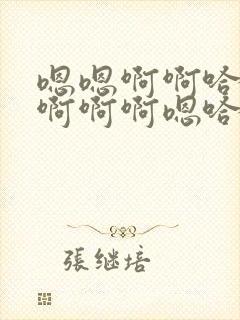 嗯嗯啊啊哈
啊啊啊嗯哈
張继培